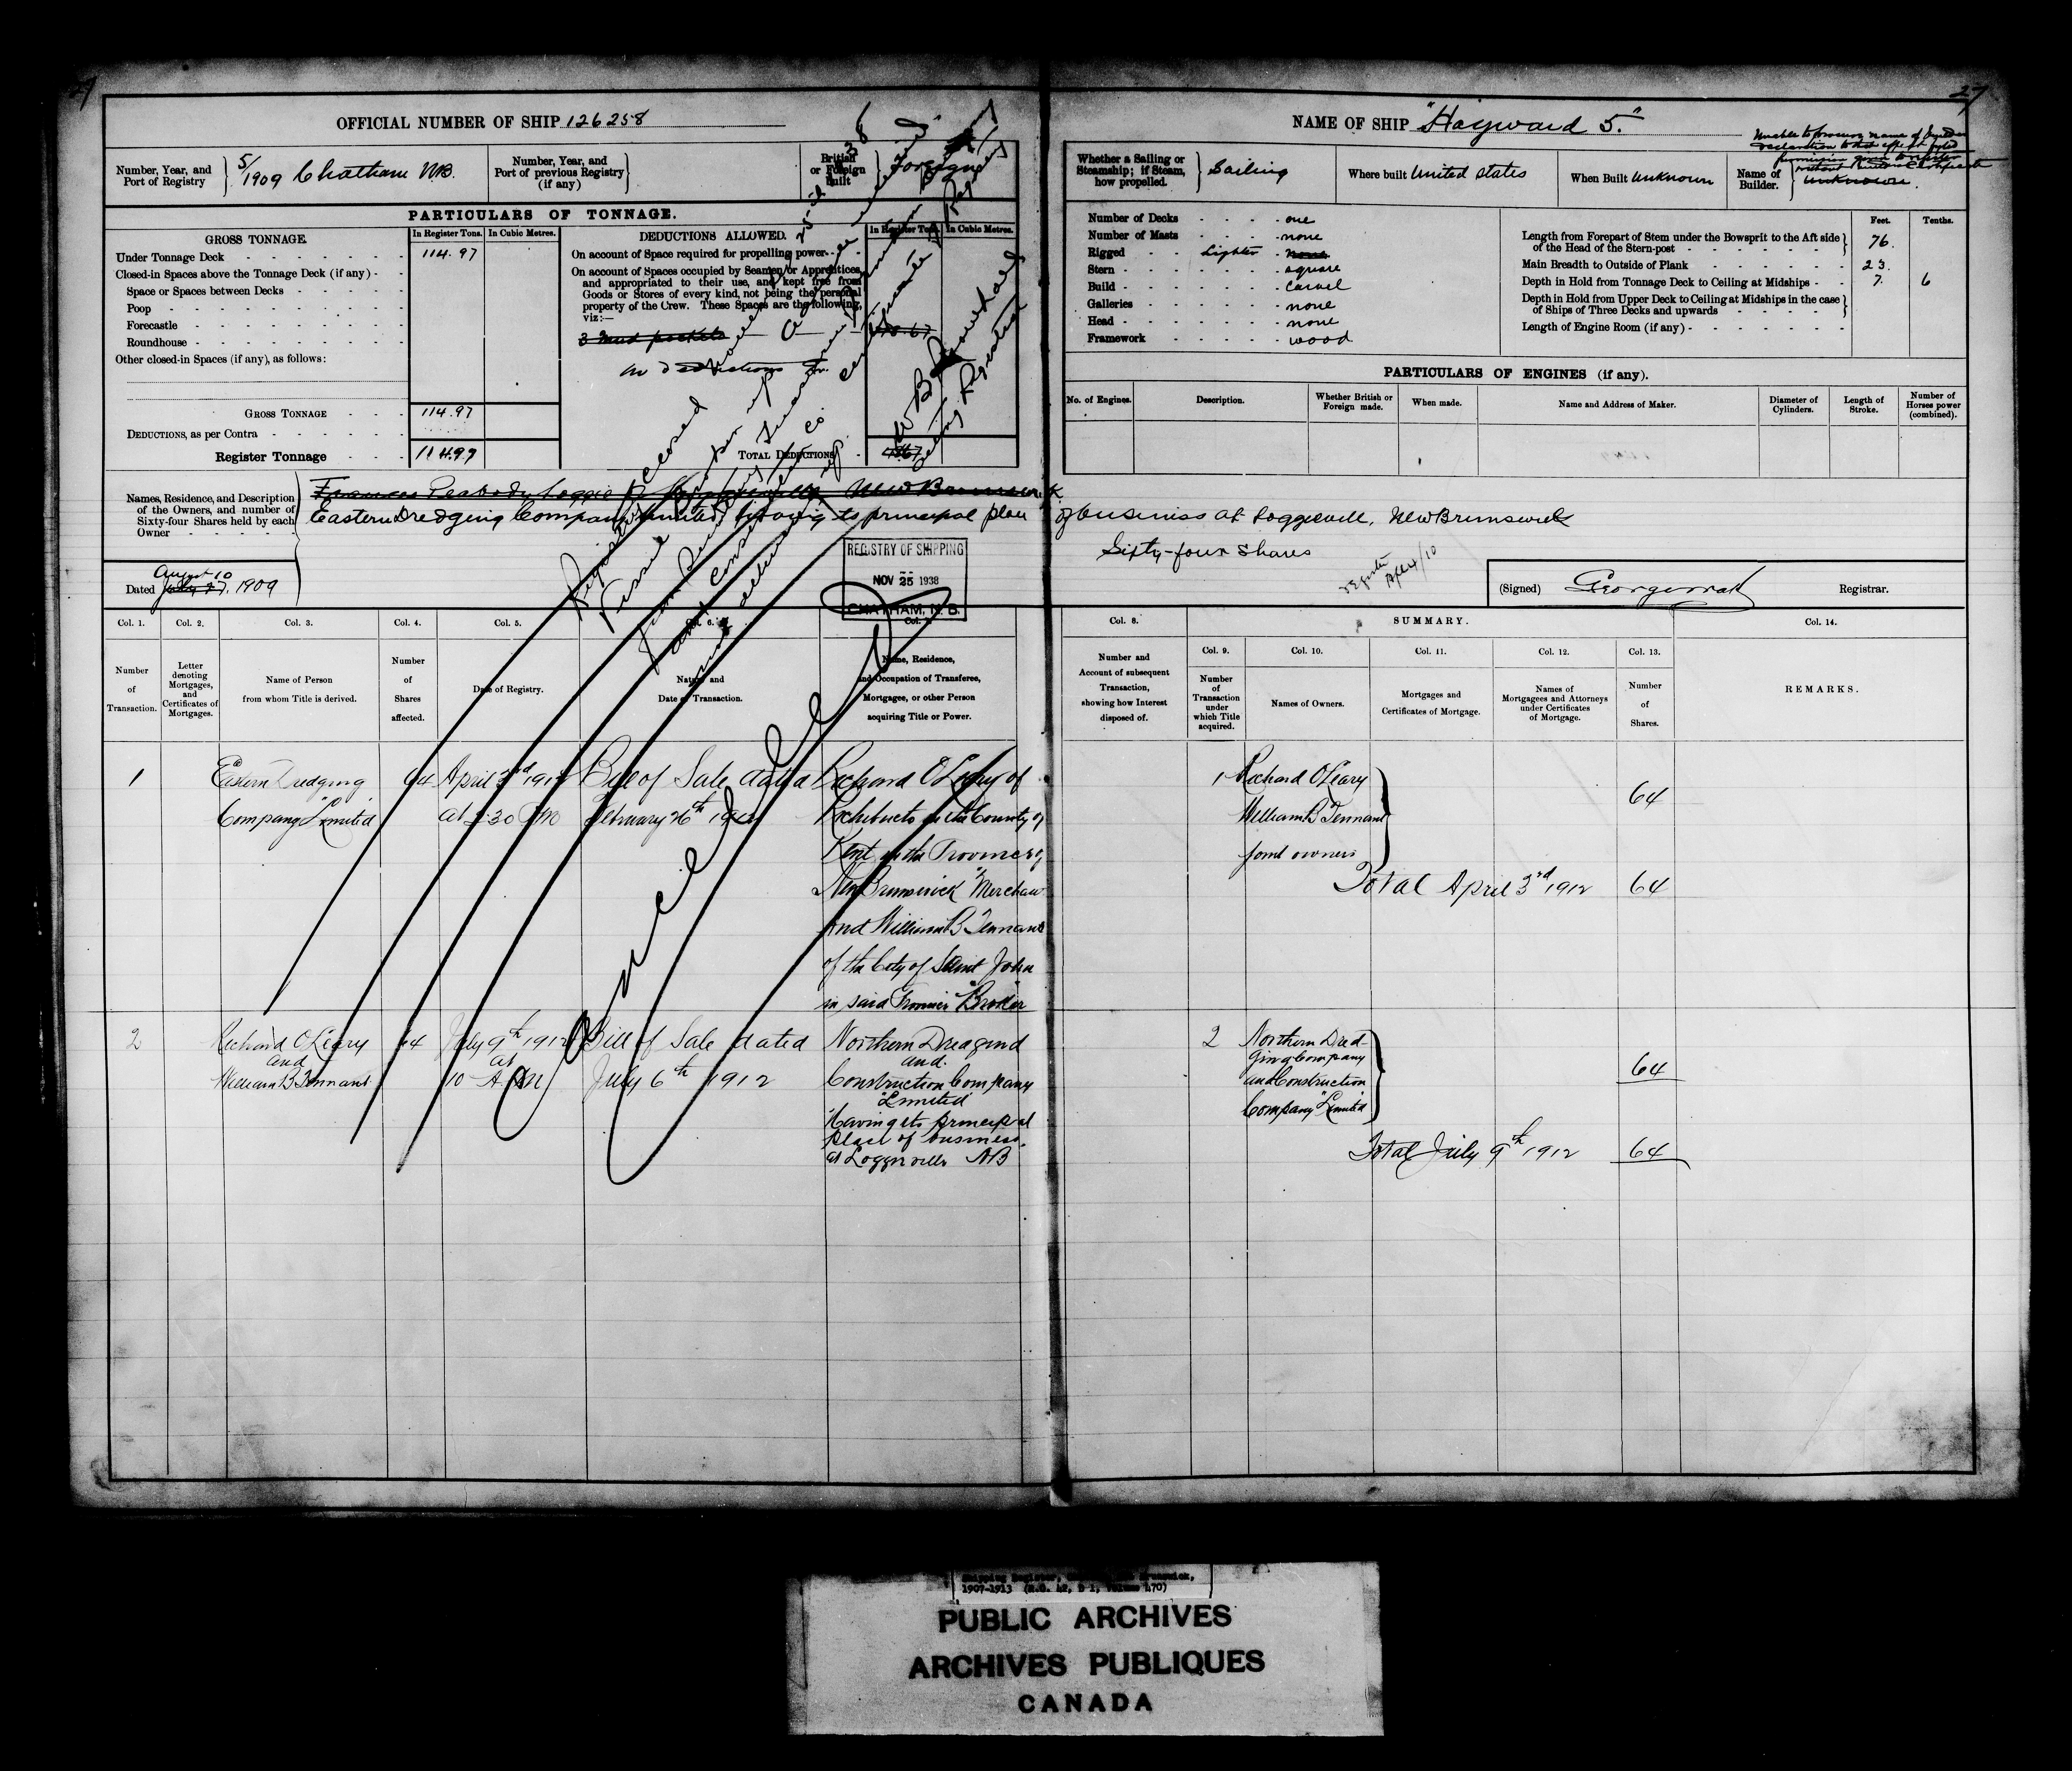 27
27
OFFICIAL NUMBER OF SHIP 126258
Number, Year, and Port of Registry
5/1909 Chatham N.B.
Number, Year, and Port of previous Registry (if any)
British or Foreign built
Foreign
PARTICULARS OF TONNAGE.
GROSS TONNAGE.
In Register Tons.
In Cubic Metres.
Under Tonnage Deck 114.97
Closed-in Spaces above the Tonnage Deck (if any)
Space or Spaces between Decks
Poop
Forecastle
Roundhouse
Other closed-in Spaces (if any), as follows:
GROSS TONNAGE 114.97
DEDUCTIONS, as per Contra
Register Tonnage 114.97
DEDUCTIONS ALLOWED.
In Register Tons.
In Cubic Metres.
On account of Space required for propelling power
On account of Spaces occupied by Seamen or Apprentices,
and appropriated to their use, and kept free from
Goods or Stores of every kind, not being the personal
property of the Crew. These Spaces are the following,
viz:—
3 mud pockets
no deductions
TOTAL DEDUCTIONS
Names, Residence, and Description
of the Owners, and number of
Sixty-four Shares held by each
Owner
Frances Peabody Loggie New Brunswick
Eastern Dredging Company Limited having its principal place of business at Loggieville, New Brunswick
Sixty-four shares
Dated August 10 July 27, 1909
Register closed
Vessel
REGISTRY OF SHIPPING
NOV 25 1938
CHATHAM, N. B.
Cancelled
NAME OF SHIP "Hayward 5."
Whether a Sailing or
Steamship; if Steam,
how propelled.
Sailing
Where built United States
When Built Unknown
Name of Builder.
Unknown.
Number of Decks one
Number of Masts none
Rigged Lighter none
Stern square
Build carvel
Galleries none
Head none
Framework wood
Feet. Tenths.
Length from Forepart of Stem under the Bowsprit to the Aft side
of the Head of the Stern-post 76.
Main Breadth to Outside of Plank 23.
Depth in Hold from Tonnage Deck to Ceiling at Midships 7. 6
Depth in Hold from Upper Deck to Ceiling at Midships in the case
of Ships of Three Decks and upwards
Length of Engine Room (if any)
PARTICULARS OF ENGINES (if any).
No. of Engines.
Description.
Whether British or Foreign made.
When made.
Name and Address of Maker.
Diameter of Cylinders.
Length of Stroke.
Number of Horses power (combined).
(Signed)
Registrar.
Col. 1. Col. 2. Col. 3. Col. 4. Col. 5. Col. 6.
Number of Transaction.
Letter denoting Mortgages, and Certificates of Mortgages.
Name of Person from whom Title is derived.
Number of Shares affected.
Date of Registry.
Nature and Date of Transaction.
Name, Residence, and Occupation of Transferee, Mortgagee, or other Person acquiring Title or Power.
Col. 8.
Number and Account of subsequent Transaction, showing how Interest disposed of.
SUMMARY.
Col. 9. Col. 10. Col. 11. Col. 12. Col. 13. Col. 14.
Number of Transaction under which Title acquired.
Names of Owners.
Mortgages and Certificates of Mortgage.
Names of Mortgagees and Attorneys under Certificates of Mortgage.
Number of Shares.
REMARKS.
1
Eastern Dredging
Company "Limited"
64
April 3rd 1912
at 2.30 P.M
Bill of Sale dated
February 26th 1912
Richard O'Leary of
Richibucto in the County of
Kent in the Province of
New Brunswick "Merchant"
And William B Tennant
of the City of Saint John
in said Province "Broker"
1
Richard O'Leary
William B Tennant
joint owners
64
Total April 3rd 1912 64
2
Richard O'Leary
and
William B Tennant
64
July 9th 1912
at
10 A.M
Bill of Sale dated
July 6th 1912
Northern Dredging
and
Construction Company
"Limited"
having its principal
place of business
at Loggieville NB
2
Northern Dred-
ging Company
and Construction
Company "Limited"
64
Total July 9th 1912 64
1907-1913 (R.G. 42, B 1, Volume 470)
PUBLIC ARCHIVES
ARCHIVES PUBLIQUES
CANADA